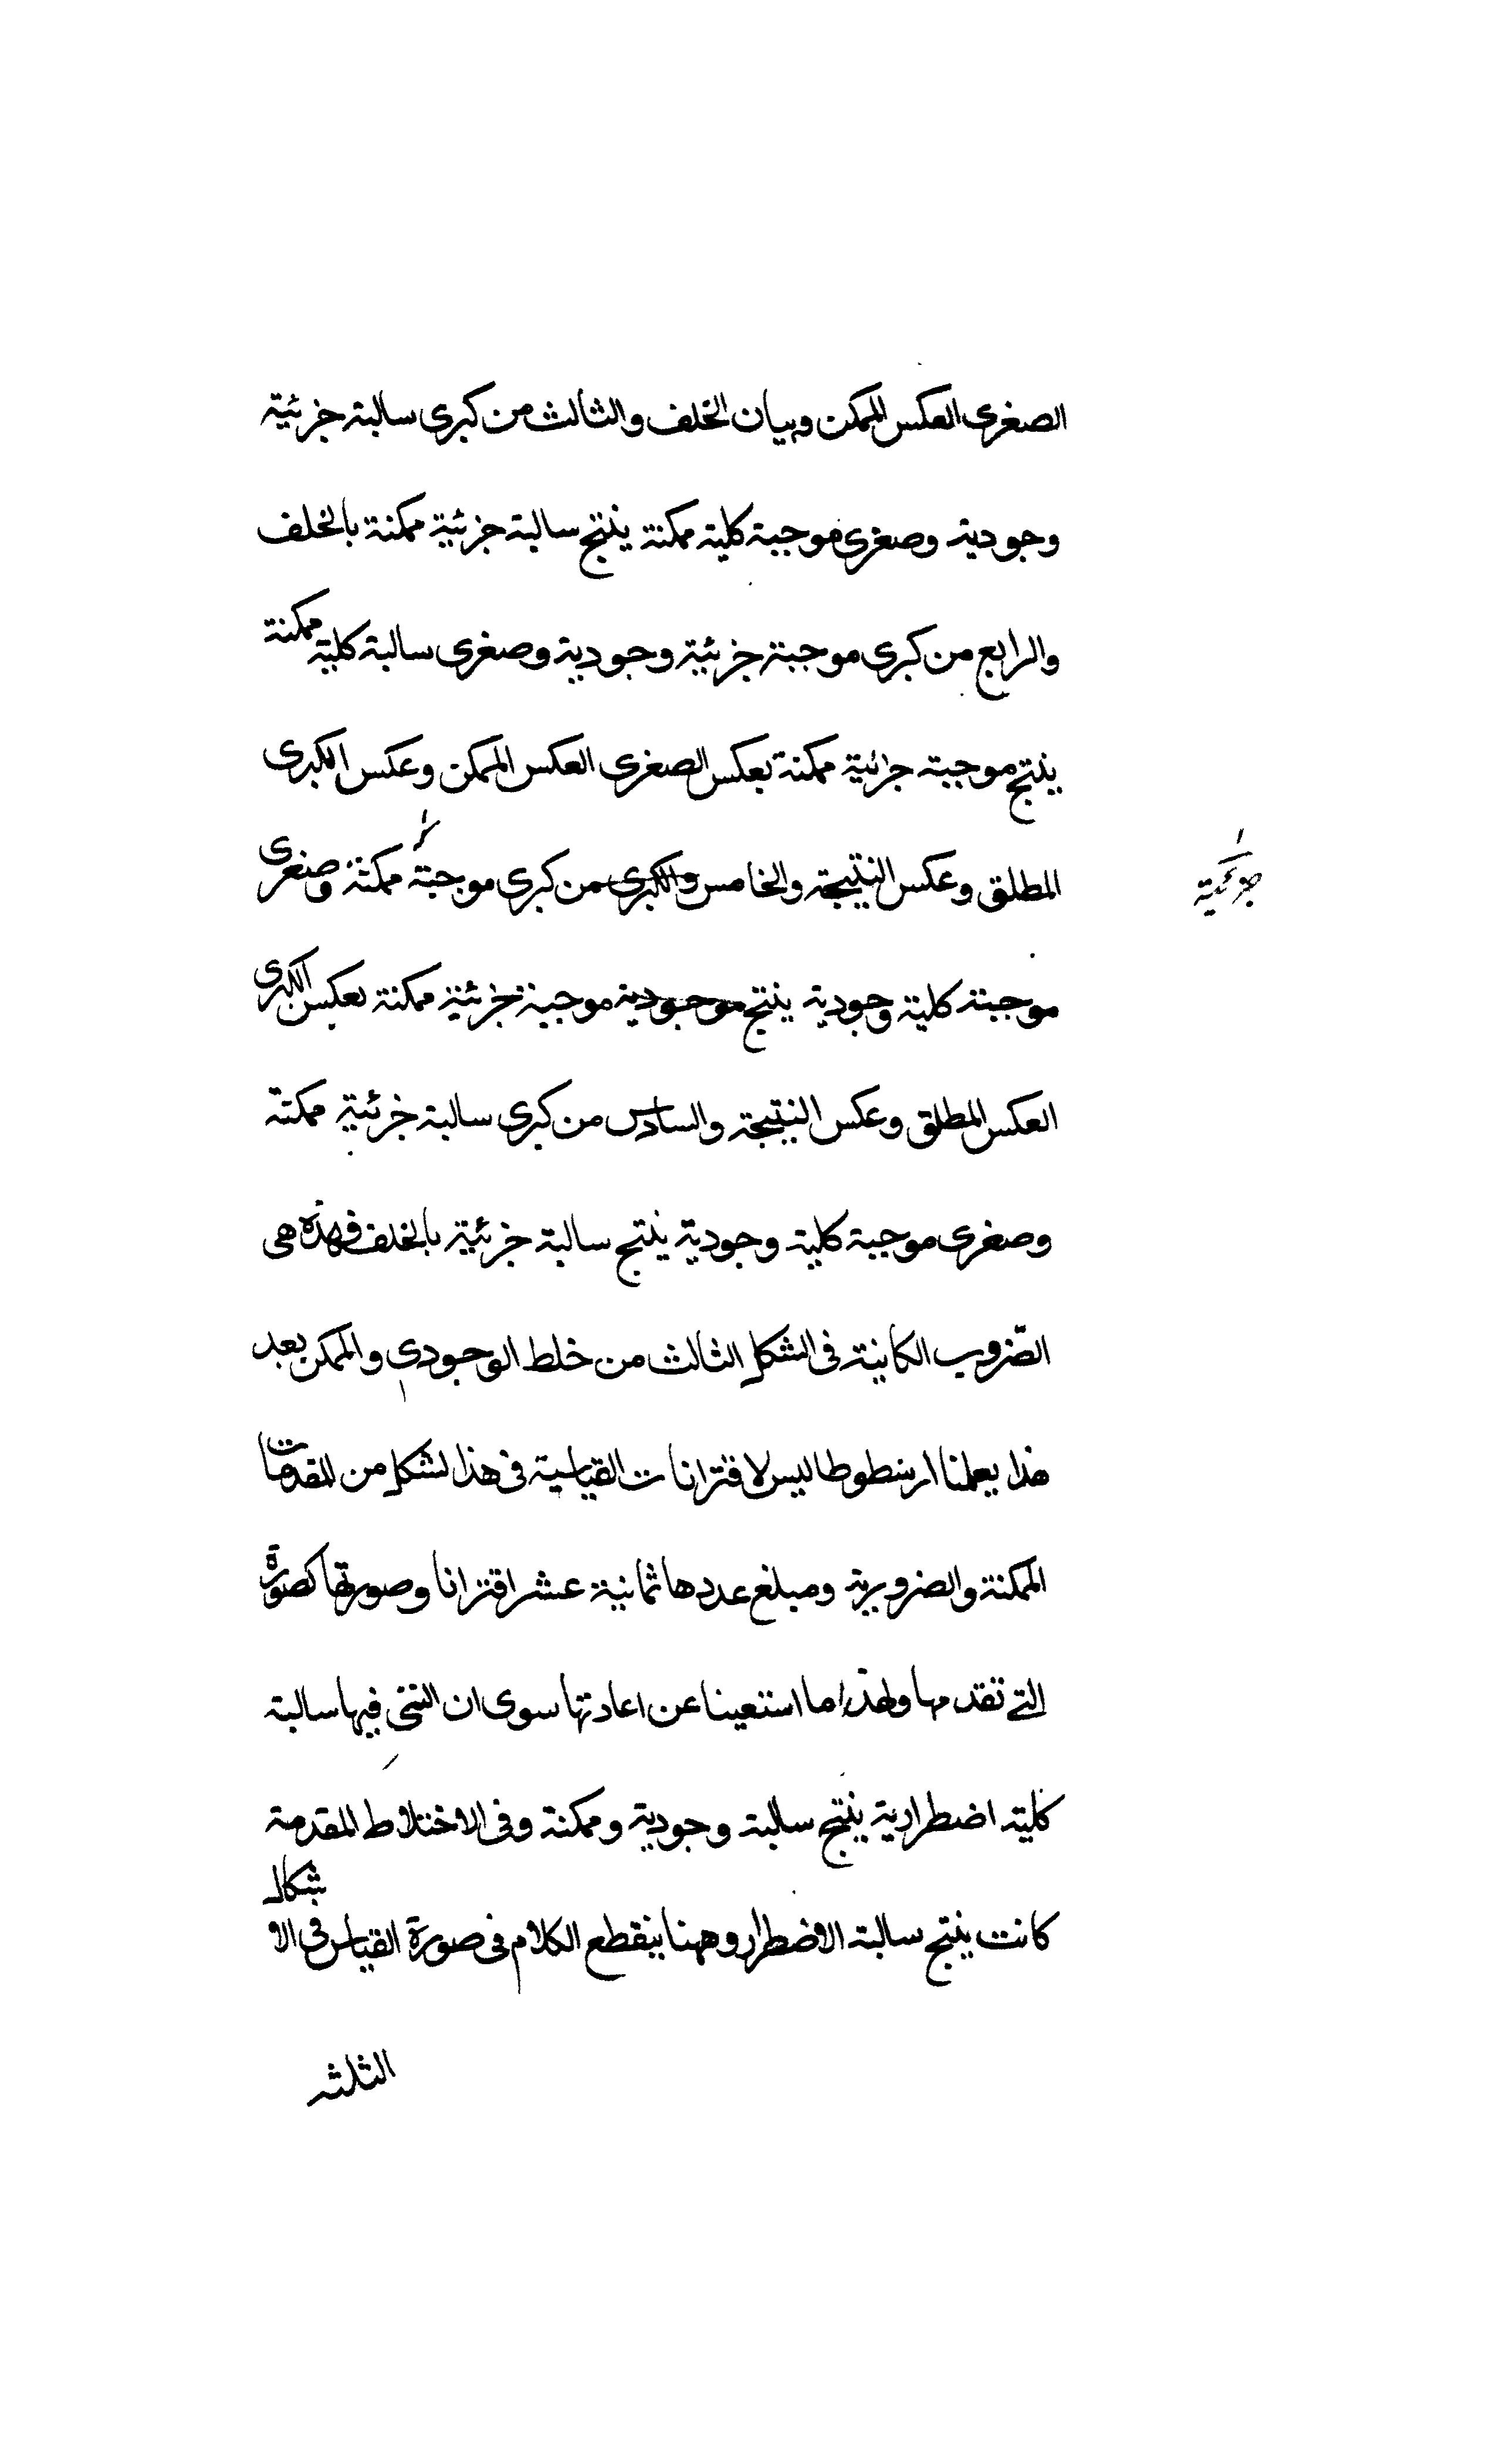 الصغرى العكس الممكن وبيان الخلف والثالث من كبرى سالبة جزئية
وجودية وصغرى موجبة كلية ممكنة ينتج سالبة جزئية ممكنة بالخلف
والرابع من كبرى موجبة جزئية وجودية وصغرى سالبة كلية ممكنة
ينتج موجبة جزئية ممكنة بعكس الصغرى العكس الممكن وعكس الكبرى
المطلق وعكس النتيجة والخامس والكبرى من كبرى موجبة ممكنة وصغرى
جزئية
موجبة كلية وجودية ينتج موجودية موجبة جزئية ممكنة بعكس الكبرى
العكس المطلق وعكس النتيجة والسادس من كبرى سالبة جزئية ممكنة
وصغرى موجبة كلية وجودية ينتج سالبة جزئية بالخلف فهذه هى
الضروب الكاينة فى الشكل الثالث من خلط الوجودى والممكن بعد
هذا يعلمنا ارسطوطاليس لاقترانات القياسية فى هذا لشكل من المقدمات
الممكنة والضرورية ومبلغ عددها ثمانية عشر اقترانا وصورتها كصورة
التى تقدمها ولهذا ما استعينا عن اعادتها سوى ان التى فيها سالبة
كلية اضطرارية ينتج سالبة وجودية وممكنة وفى الاختلاط المقدمة
كانت ينتج سالبة الاضطرار وههنا ينقطع الكلام فى صورة القياس فى الاشكال
الثلثه